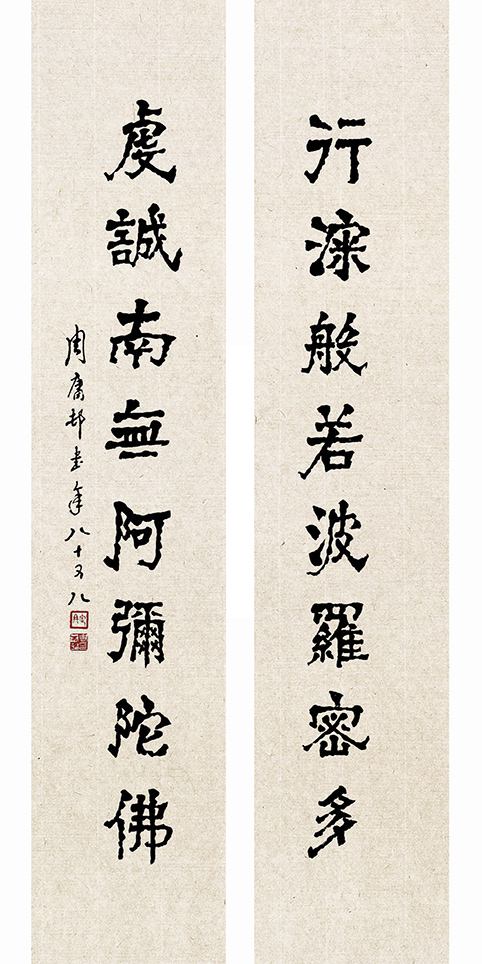 行深般若波羅密多
虔誠南無阿彌陀佛
周慮邨書年八十又八